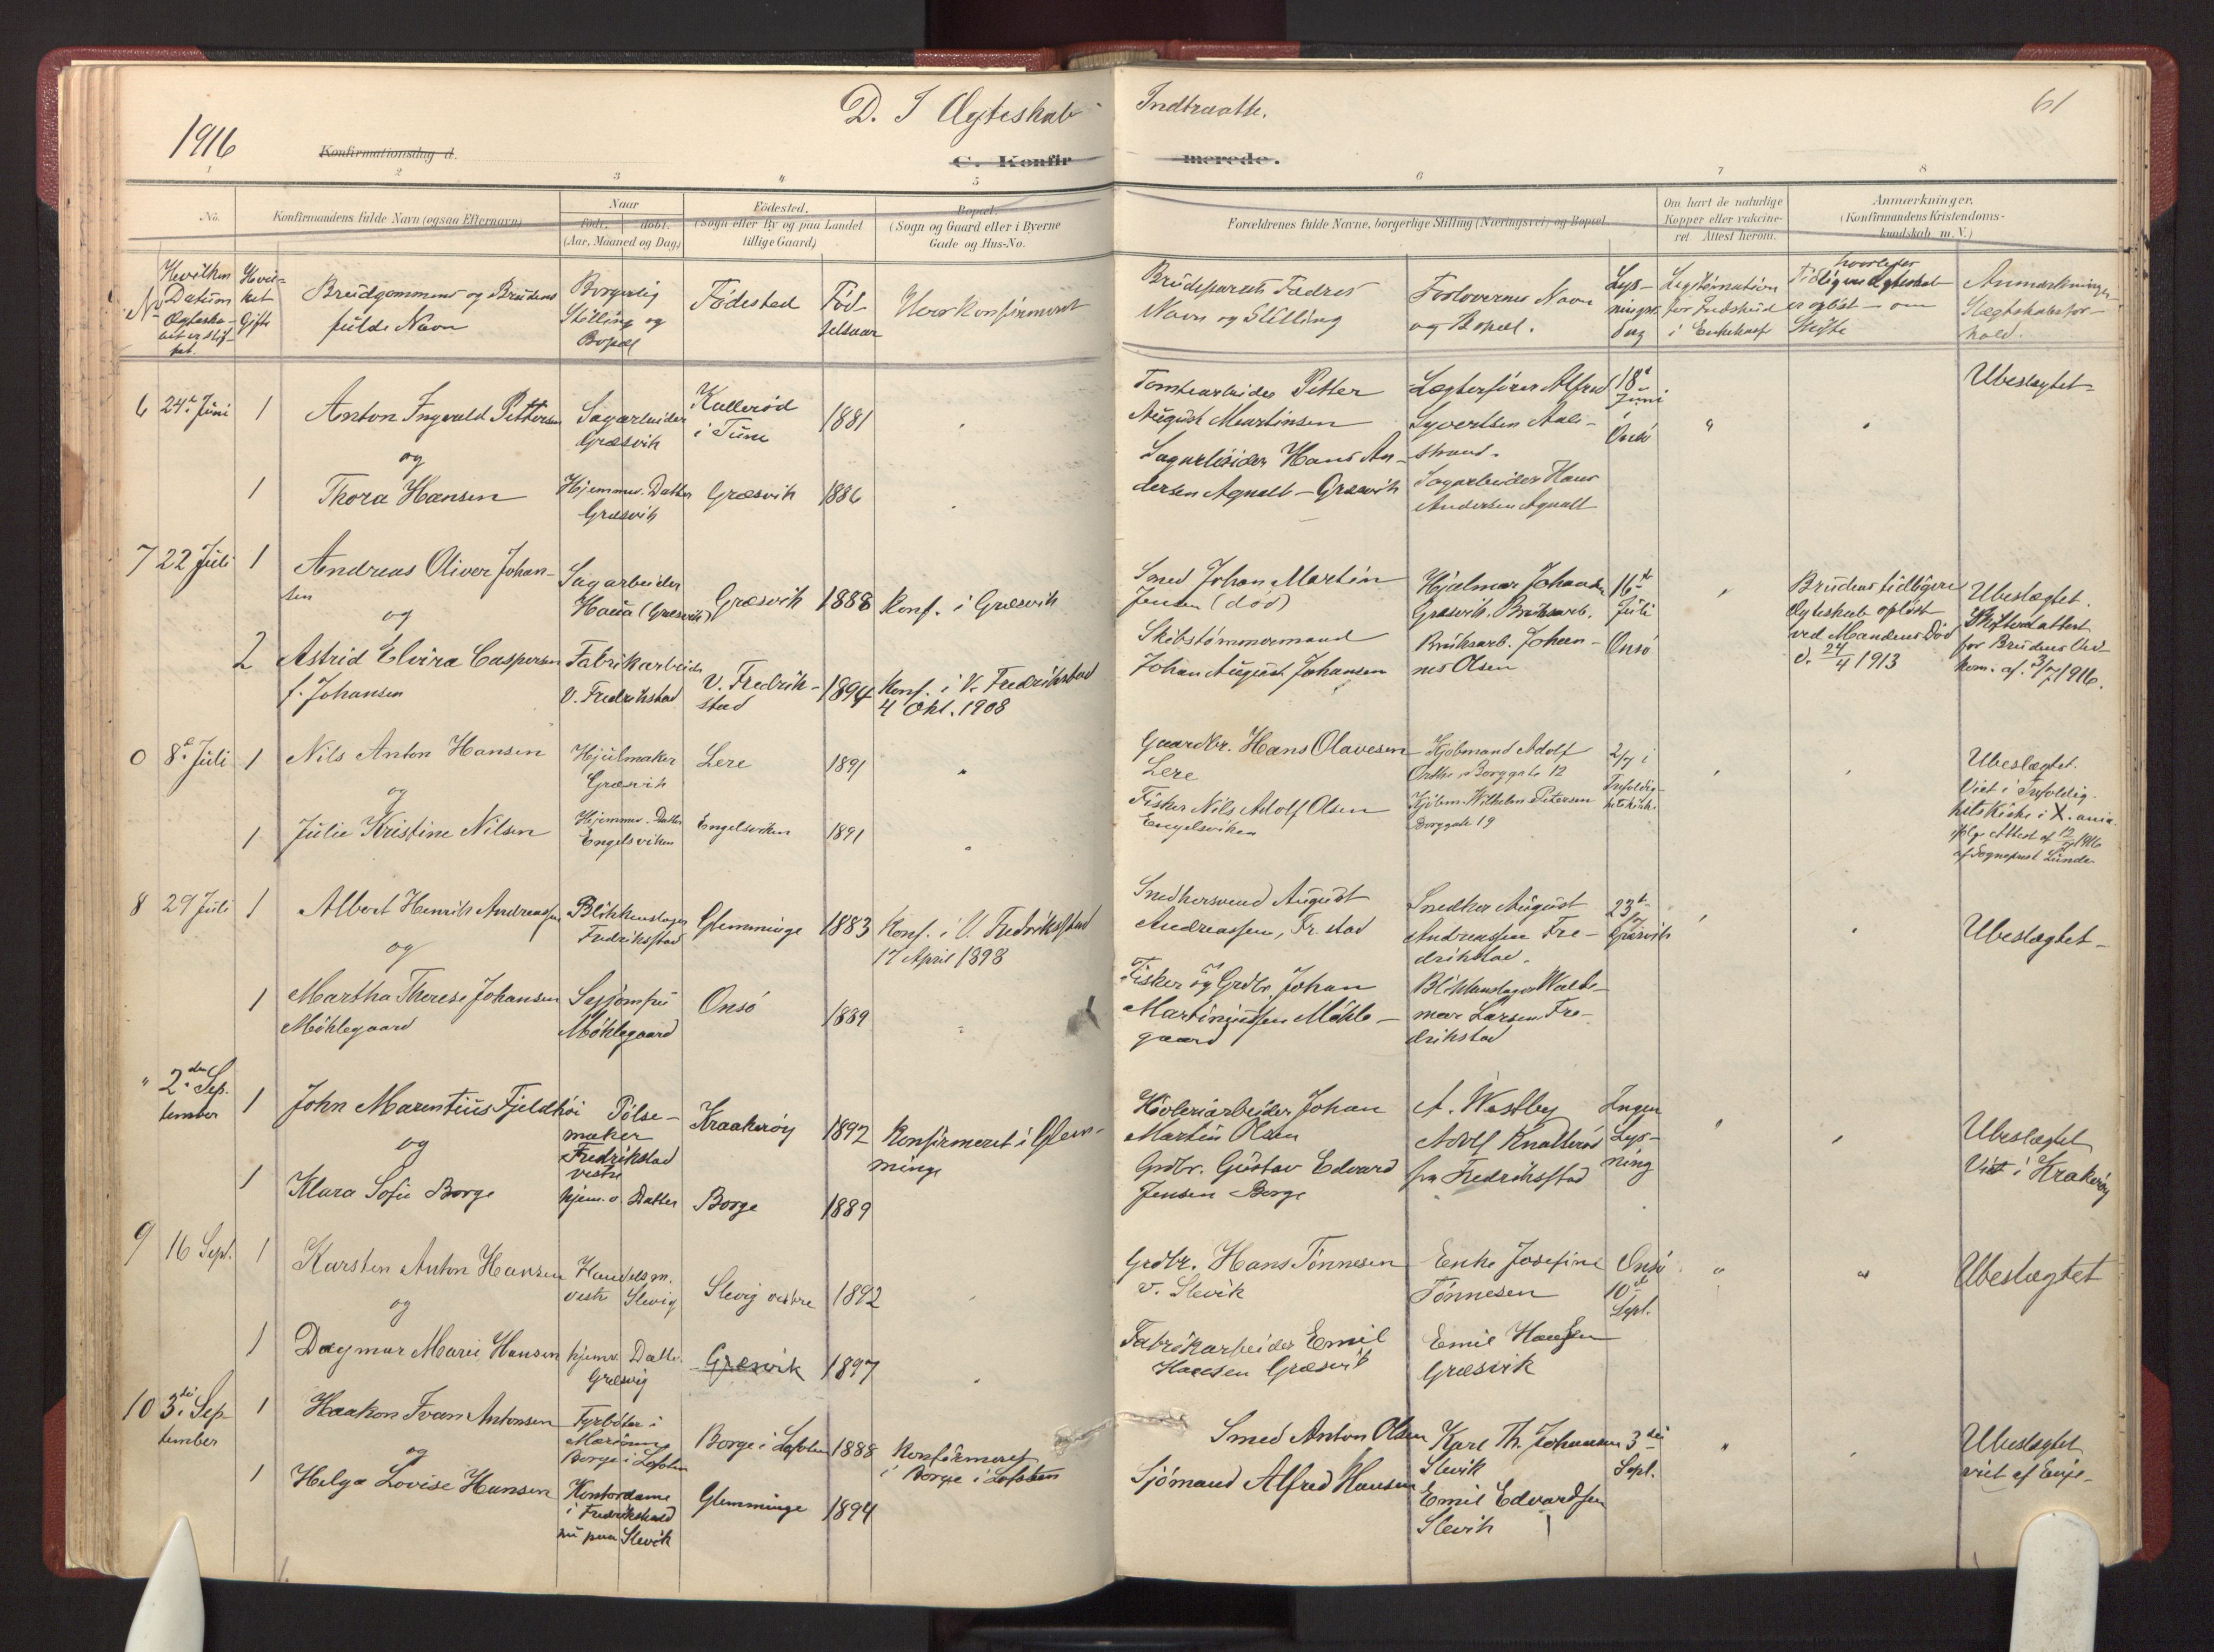 D. I Ægteskab Indtraatte.
61
1916
Konfirmationsdag d.
C. Konfirmerede.
1 2 3 4 5 6 7 8
No.
Konfirmandens fulde Navn (ogsaa Efternavn)
Naar
født. døbt.
(Aar, Maaned og Dag)
Fødested.
(Sogn eller By og paa Landet
tillige Gaard)
Bopæl.
(Sogn og Gaard eller i Byerne
Gade og Hus-No.
Forældrenes fulde Navne, borgerlige Stilling (Næringsvei) og Bopæl
Om havt de naturlige
Kopper eller vakcine-
ret Attest herom.
Anmærkninger.
(Konfirmandens Kristendoms-
kundskab m. V.)
No
Hvilken
Datum
Ægteska-
bet er stif-
tet.
Hvil-
ket
Gifte
Brudgommens og Brudens
fulde Navn
Borgerlig
Stilling og
Bopæl
Fødested
Fød-
selsaar
Hvor konfirmeret
Brudeparrets Fædres
Navn og Stilling
Forlovernes Navn
og Bopæl.
Lys-
nings-
dag
Legitimation
for Indskud
i Enkekasse
hvorledes
Tidligere Ægteskab
er opløst - om
Skifte
Anmærkninger
Slægtskabsfor-
hold.
6 24de Juni 1
Anton Ingvald Pettersen
Sagarbeider
Græsvik
Kullerød
i Tune
1881
Tomtearbeider Petter
August Martinsen
Lægterfører Alfred
Syvertsen Aale-
strand.
18d
Juni
i
Onsø
Ubeslægtet
og
1
Thora Hansen
Hjemmev. Datter
Græsvik
Græsvik
1886
Sagarbeider Hans An-
dersen Agnalt - Græsvik
Sagarbeider Hans
Andersen Agnalt
7 22 Juli 1
Andreas Oliver Johan-
sen
Sagarbeider
Haua (Græsvik)
Græsvik
1888
Konf. i Græsvik
Smed Johan Martin
Jensen (død)
Hjalmar Johansen
Græsvik. Bruksarb.
16de
Juli
Onsø
Brudens tidligere
Ægteskab opløst
ved Mandens Død
d. 24/4 1913
Ubeslægtet.
Skifteattest
for Bruden
kom. af. 3/7 1916.
og
2
Astrid Elvira Caspersen
f. Johansen
Fabrikarbeide
V. Fredrikstad
V. Fredrik-
stad
1894
Konf. i V. Fredrikstad
4 Okt. 1908
Skibstømmermand
Johan August Johansen
Bruksarb. Johan-
nes Olsen
0 8de Juli 1
Nils Anton Hansen
Hjulmaker
Græsvik
Lere
1891
Gaardbr. Hans Olavesen
Lere
Kjøbmand Adolf
Borggate 12
2/7 i
Trefoldig-
hetskirke
Ubeslægtet.
Viet i Trefoldig-
hets Kirke i X.ania
ifølge Attest af 12/7 1916
af Sogneprest Lunde
og
1
Julie Kristine Nilsen
Hjemmev. Datter
Engelsviken
Engelsviken
1891
Fisker Nils Adolf Olsen
Engelsviken
Kjøbm. Wilhelm Petersen
Borggate 19
8 29 Juli 1
Albert Henrik Andreassen
Blikkenslager
Fredriksstad
Glemminge
1883
Konf. i V. Fredriksstad
17 April 1898
Snedkersvend August
Andreassen, Fr.stad
Snedker August
Andreassen Fre-
drikstad.
23de
7
Græsvik
Ubeslægtet
og
1
Martha Therese Johansen
Møklegaard
Syjomfru
Møklegaard
Onsø
1889
Fisker og Grdbr. Johan
Martiniussen Møkle-
gaard
Blikkenslager Walde-
mar Larsen Fre-
drikstad
" 2den Sep-
tember
1
John Marentius Fjeldhøi
Pølse-
maker
Fredrikstad
vestre
Kraakerøy
1892
Konfirmeret i Glem-
minge
Høvleriarbeider Johan
Martin Olsen
A. Westley
Adolf Knatterød
fra Fredriksstad
Ingen
Lys-
ning
Ubeslægtet
Viet i Krakerøy
og
1
Klara Sofie Borge
hjem.v Datter
Borge
1889
Grdbr. Gustav Edvard
Jensen Borge
9 16 Sept. 1
Karsten Anton Hansen
Handelsm.
vestre Slevig
Slevig vestre
1892
Grdbr. Hans Tønnesen
v. Slevik
Enke Josefine
Tønnesen
Onsø
10de
Sept.
Ubeslægtet
og
1
Dagmar Marie Hansen
hjemv. Datter
Græsvig
Græsvik
1897
Fabrikarbeider Emil
Hansen Græsvik
Emil Hansen
Græsvik
10 3die Sep-
tember
1
Haakon Ivan Antonsen
Fyrbøter i
Marinen
Borge i Lofoten
Borge i Lofoten
1888
Konfirmeret
i Borge i Lofoten
Smed Anton Olsen
Karl Th. Johansen
Slevik
3die
Sept.
Ubeslægtet
viet af
og
1
Helga Lovise Hansen
Kontordame
i Fredrikstad
nu paa Slevik
Glemminge
1894
Sjømand Alfred Hansen
Emil Edvardsen
Slevik